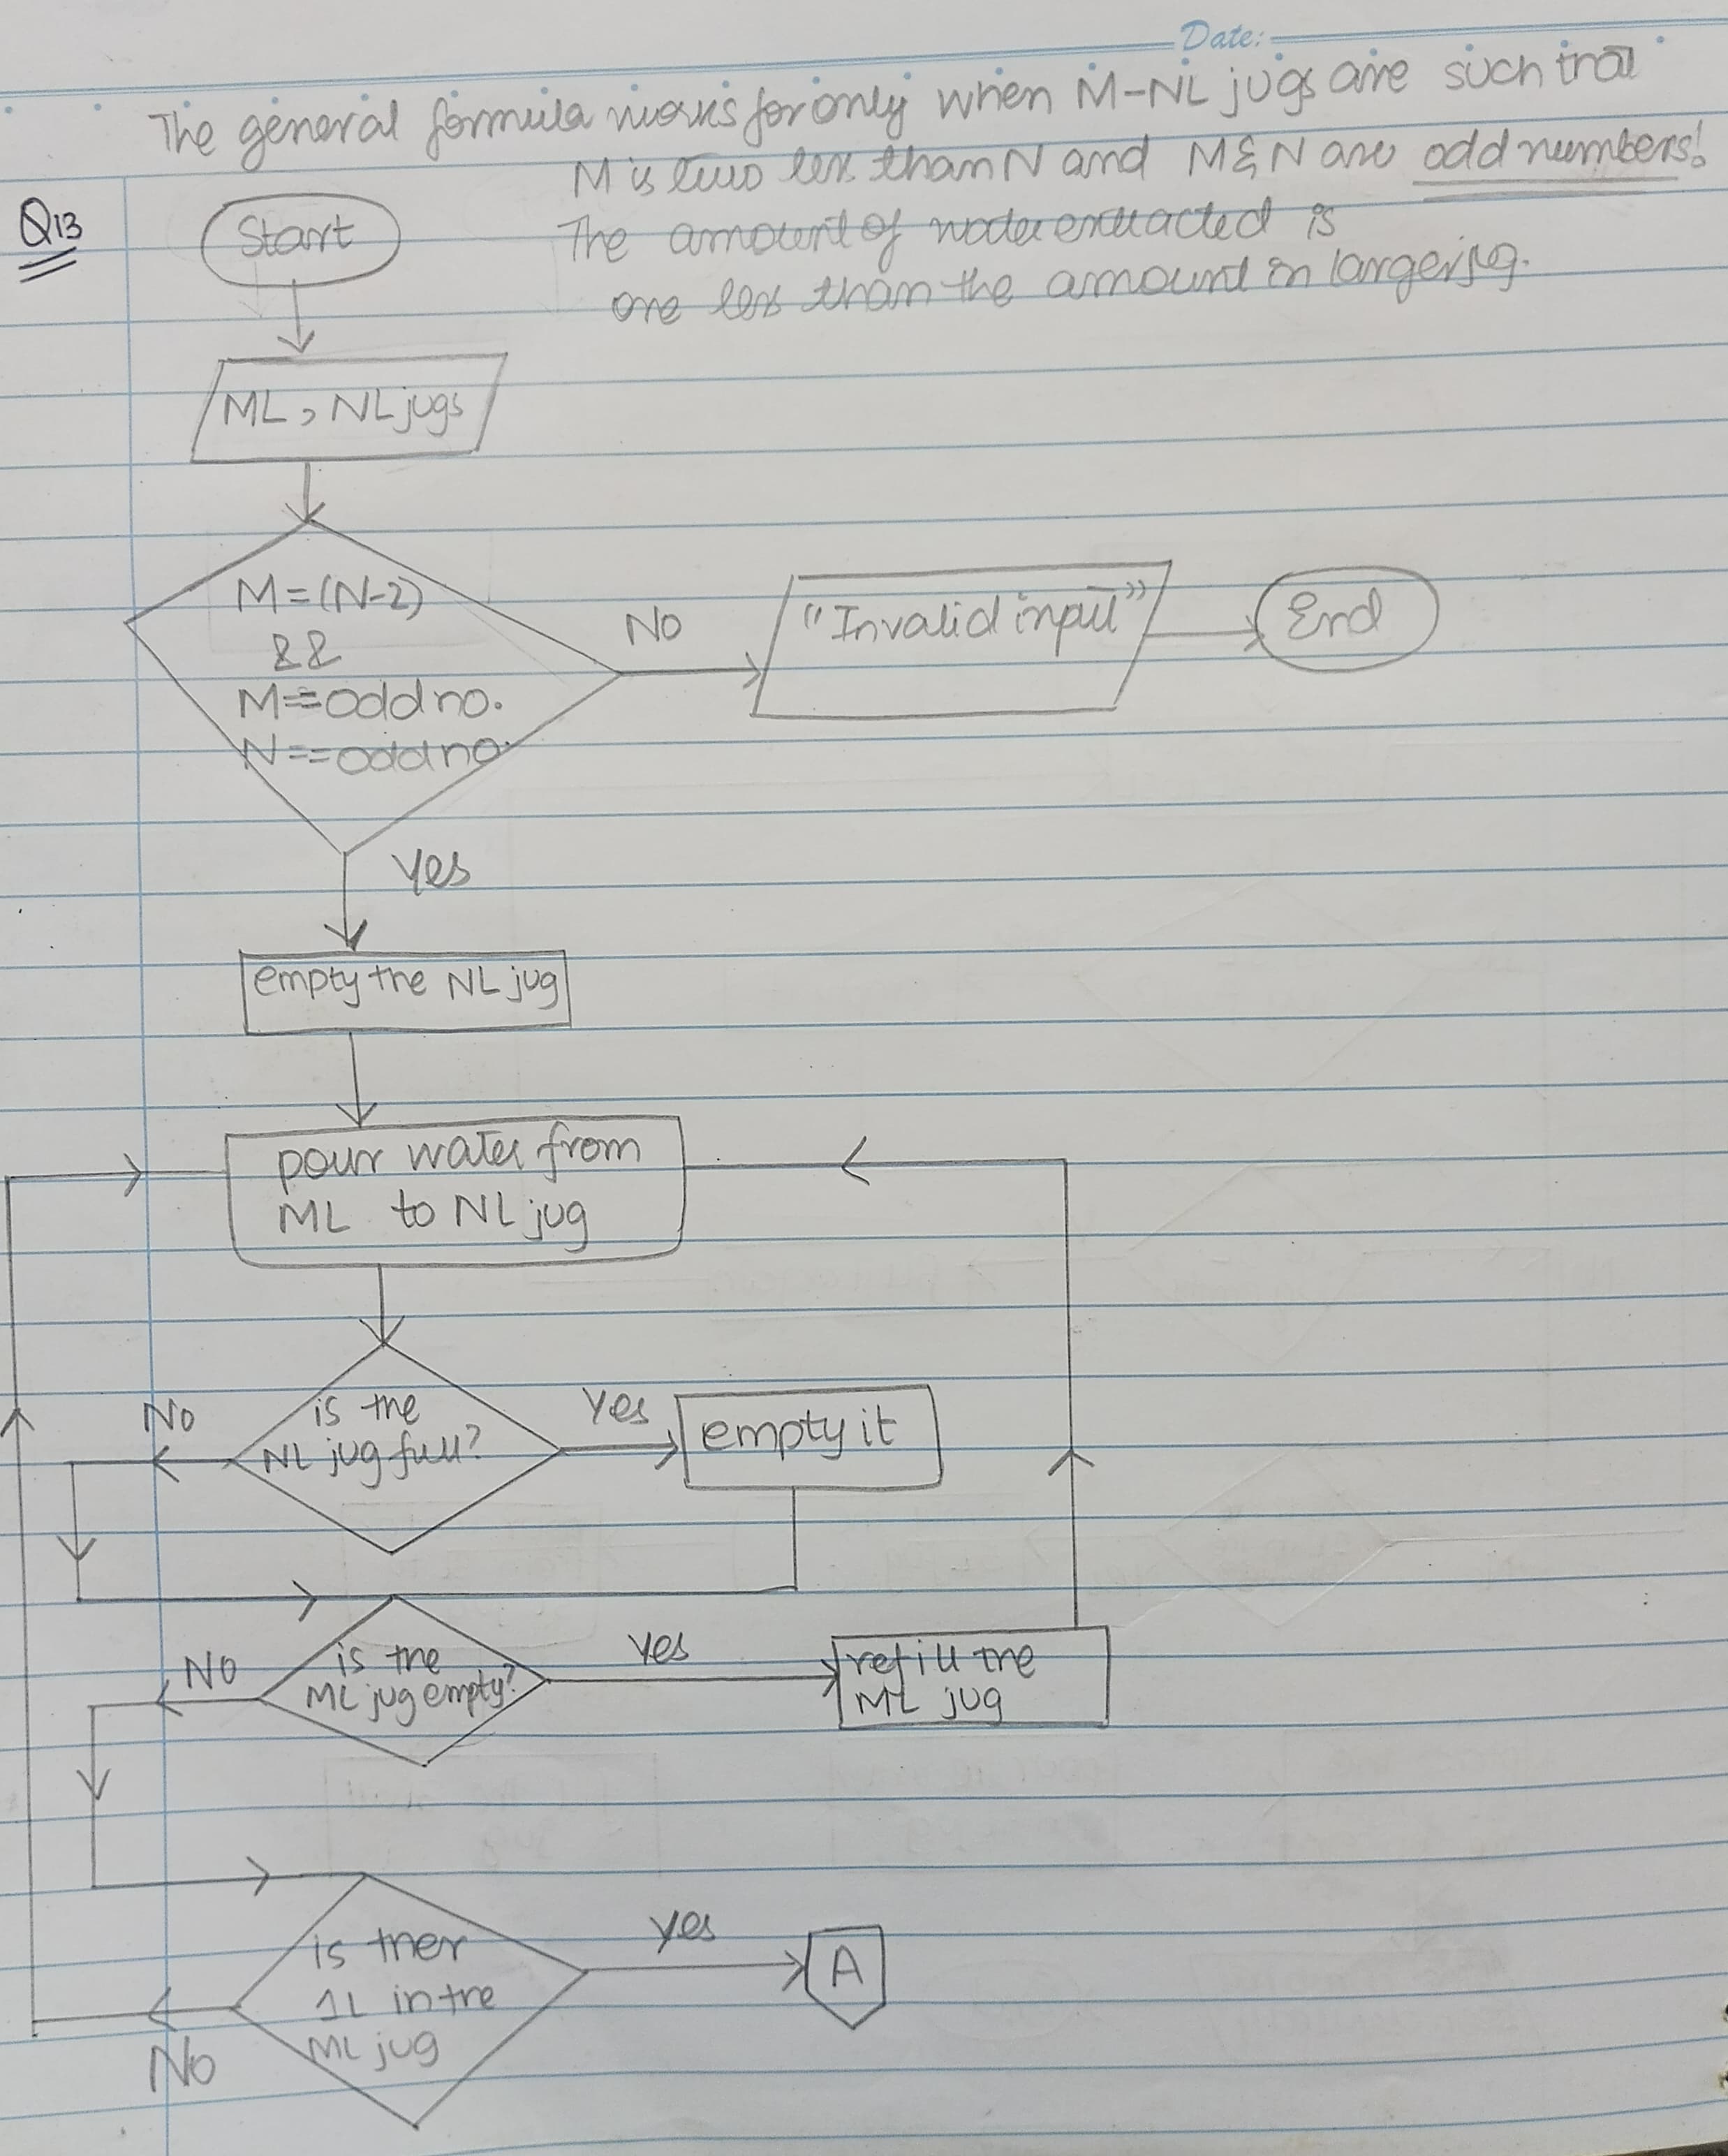 Date:
The general formula works for only when M-NL jugs are such that
M is two less than N and M & N are odd numbers!
The amount of water extracted is
one less than the amount in larger jug.
Q13
Start
ML, NL jugs
M=(N-2)
&&
M==odd no.
N==odd no.
NO
"Invalid input"
End
Yes
empty the NL jug
pour water from
ML to NL jug
is the
NL jug full?
No
Yes
empty it
is the
ML jug empty?
NO
Yes
refill the
ML jug
is ther
1L in the
ML jug
Yes
A
No